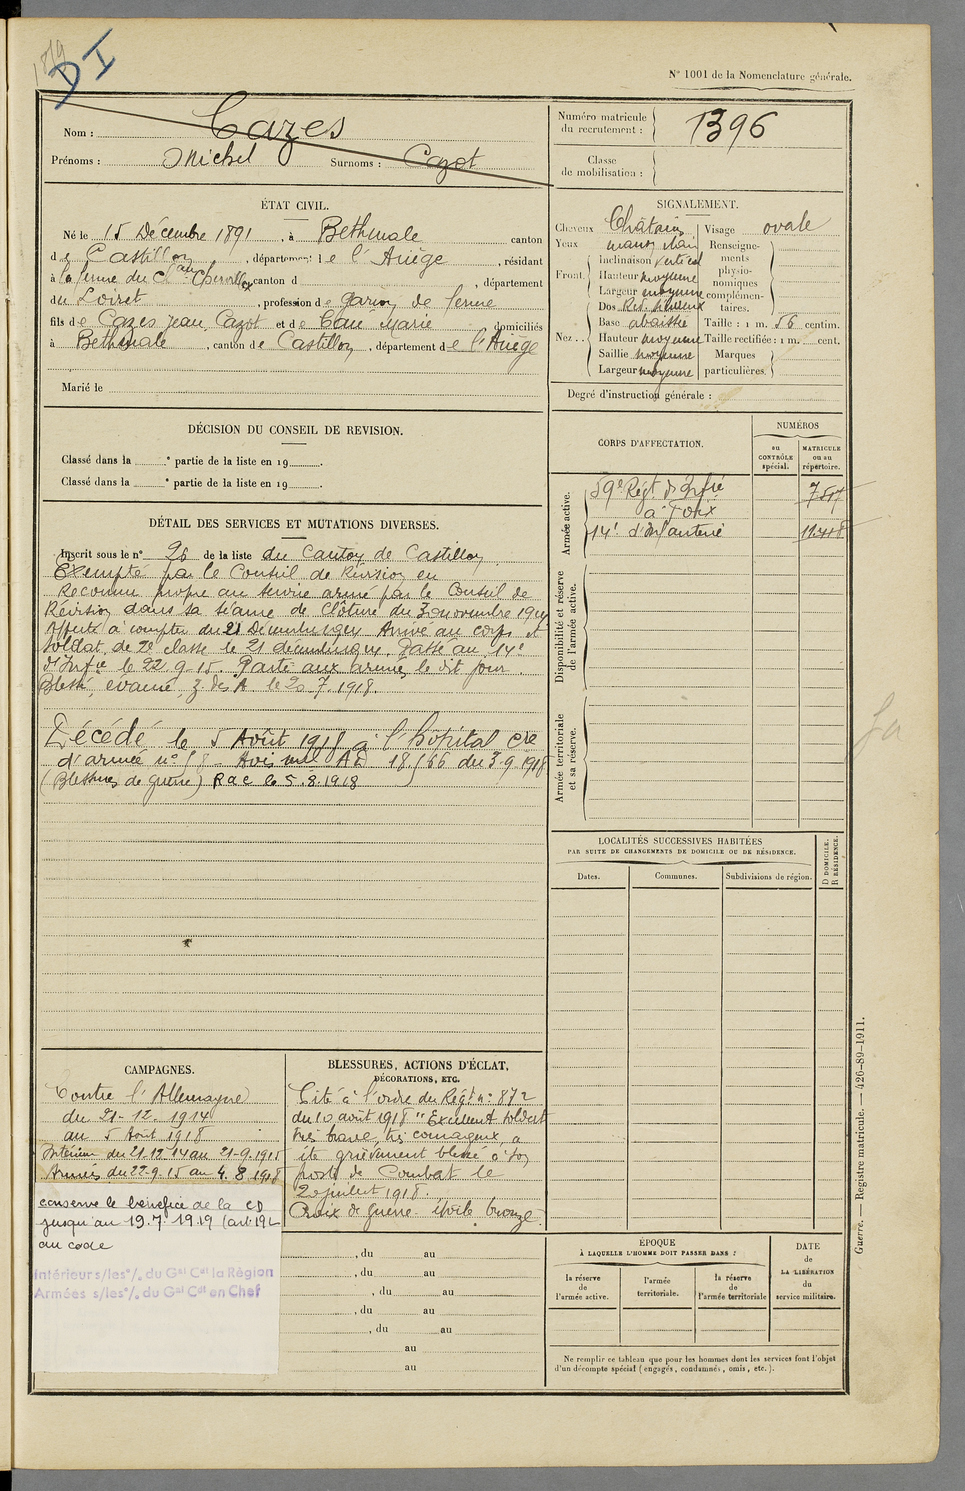 1819
DI
N° 1001 de la Nomenclature générale.
Nom : Cazes
Prénoms : Michel Surnoms : Cazot
Numéro matricule du recrutement : 1396
Classe de mobilisation :
ÉTAT CIVIL.
Né le 15 Décembre 1891, à Bethmale canton
de Castillon, département de l'Ariège, résidant
à la ferme du canton d , département
du Loiret, profession de garçon de ferme
fils de Cazes Jean, Cazot et de Cau Marie domiciliés
à Bethmale, canton de Castillon, département de l'Ariège
Marié le
SIGNALEMENT.
Cheveux Châtains Visage ovale
Yeux Renseigne-
Front. Inclinaison vertical ments
Hauteur moyenne physio-
nomiques
Largeur moyenne complémen-
Dos Rect. taires.
Nez .. Base abaissée Taille : 1 m. 56 centim.
Hauteur moyenne Taille rectifiée : 1 m. cent.
Saillie moyenne Marques
Largeur moyenne particulières.
Degré d'instruction générale :
DÉCISION DU CONSEIL DE REVISION.
Classé dans la ° partie de la liste en 19 .
Classé dans la ° partie de la liste en 19 .
CORPS D'AFFECTATION.
NUMÉROS
au CONTRÔLE spécial.
MATRICULE ou au répertoire.
Armée active.
59e Régt d'Infie 7517
à Foix
14e d'Infanterie 12418
Disponibilité et réserve de l'armée active.
Armée territoriale et sa réserve.
DÉTAIL DES SERVICES ET MUTATIONS DIVERSES.
Inscrit sous le n° 26 de la liste du Canton de Castillon
Exempté par le Conseil de Révision en
Reconnu propre au service armé par le Conseil de
Révision dans sa séance de clôture du 30 novembre 1914
Affecté à compter du 21 Décembre 1914 Arrivé au corps et
soldat de 2e classe le 21 décembre 1914. Passé au 14e
d'Infie le 22.9.15. Parti aux armées le dit jour.
Blessé, évacué, z. des A le 20.7.1918.
Décédé le 5 Août 1918 à l'hôpital
d'armée n° Avis AD 18566 du 3.9.1918
(Blessures de guerre) Rac le 5.8.1918
LOCALITÉS SUCCESSIVES HABITÉES
PAR SUITE DE CHANGEMENTS DE DOMICILE OU DE RÉSIDENCE.
Dates. Communes. Subdivisions de région. D DOMICILE. R RÉSIDENCE.
CAMPAGNES.
Contre l'Allemagne
du 21-12-1914
au 5 Août 1918
Intérieur du 21.12.14 au 21.9.1915
Armées du 22.9.15 au 4.8.1918
conserve le bénéfice de la CD
jusqu'au 19.7.1919 (art. 19
du code
Intérieur s/les°/. du Gal Cdt la Région
Armées s/les°/. du Gal Cdt en Chef
BLESSURES, ACTIONS D'ÉCLAT,
DÉCORATIONS, ETC.
Cité à l'ordre du Régt n° 872
du 10 août 1918 "Excellent soldat
très brave, très courageux, a
été grièvement blessé à son
poste de Combat le
20 juillet 1918.
Croix de Guerre étoile bronze.
, du au
, du au
, du au
, du au
, du au
au
au
ÉPOQUE
À LAQUELLE L'HOMME DOIT PASSER DANS :
la réserve de l'armée active.
l'armée territoriale.
la réserve de l'armée territoriale
DATE de LA LIBÉRATION du service militaire.
Ne remplir ce tableau que pour les hommes dont les services font l'objet
d'un décompte spécial (engagés, condamnés, omis, etc.).
Guerre. — Registre matricule. — 426-89-1911.